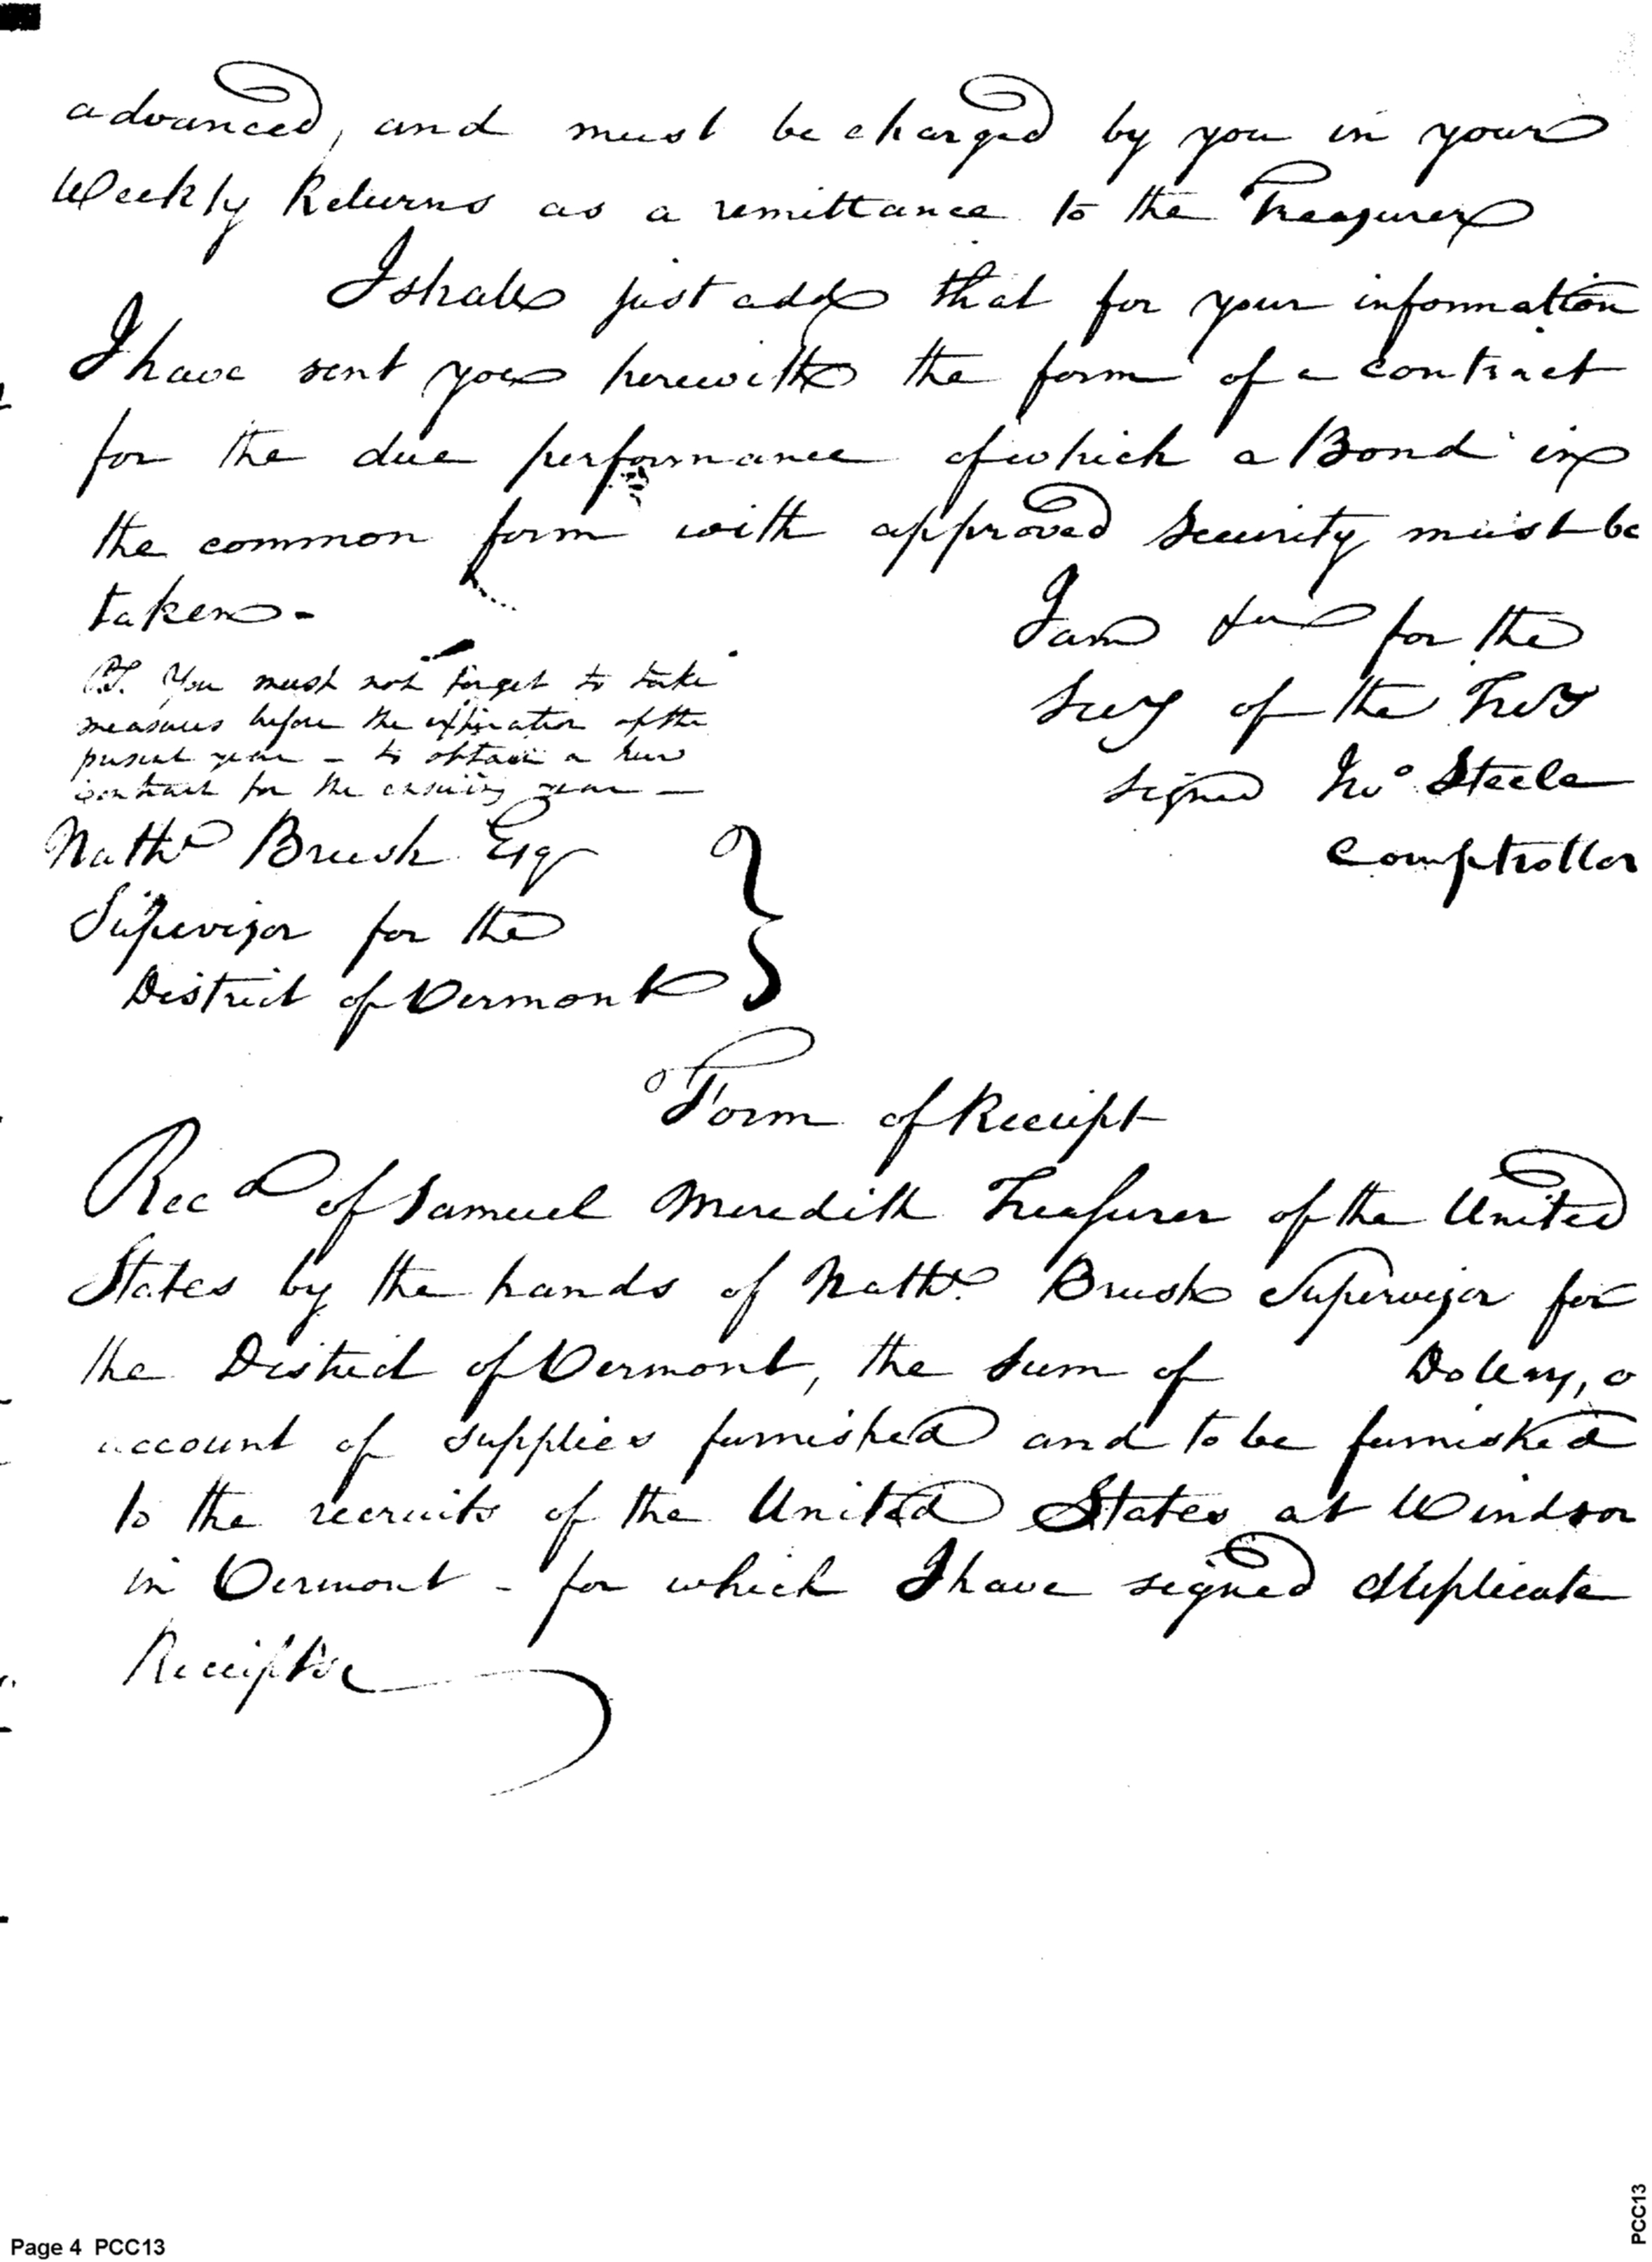 advanced, and must be charged by you in your
Weekly Returns as a remittance to the Treasurer
I shall just add that for your information
I have sent you herewith the form of a contract
for the due performance of which a Bond in
the common form with approved Security must be
taken -
I am &c for the
Secy of the Trey
signed Jno Steele
Comptroller
P.S. You must not forget to take
measures before the expiration of the
present year - to obtain a new
contract for the ensuing year -
Nathl Brush Esq
Supervisor for the
District of Vermont
Form of Receipt
Recd of Samuel Meredith Treasurer of the United
States by the hands of Nathl. Brush Supervisor for
the District of Vermont, the Sum of Dollars, o
account of supplies furnished and to be furnished
to the recruits of the United States at Windsor
in Vermont - for which I have signed duplicate
Receipts
Page 4 PCC13
PCC13